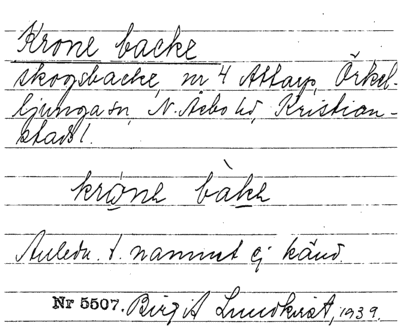 Krone backe
skogsbacke, nr 4 Attarp, Örkel-
ljunga sn, N. Åsbo hd, Kristian-
stads l.
kròne bàke
Anledn. t. namnet ej känd.
Nr 5507. Birgit Lundkvist, 1939.